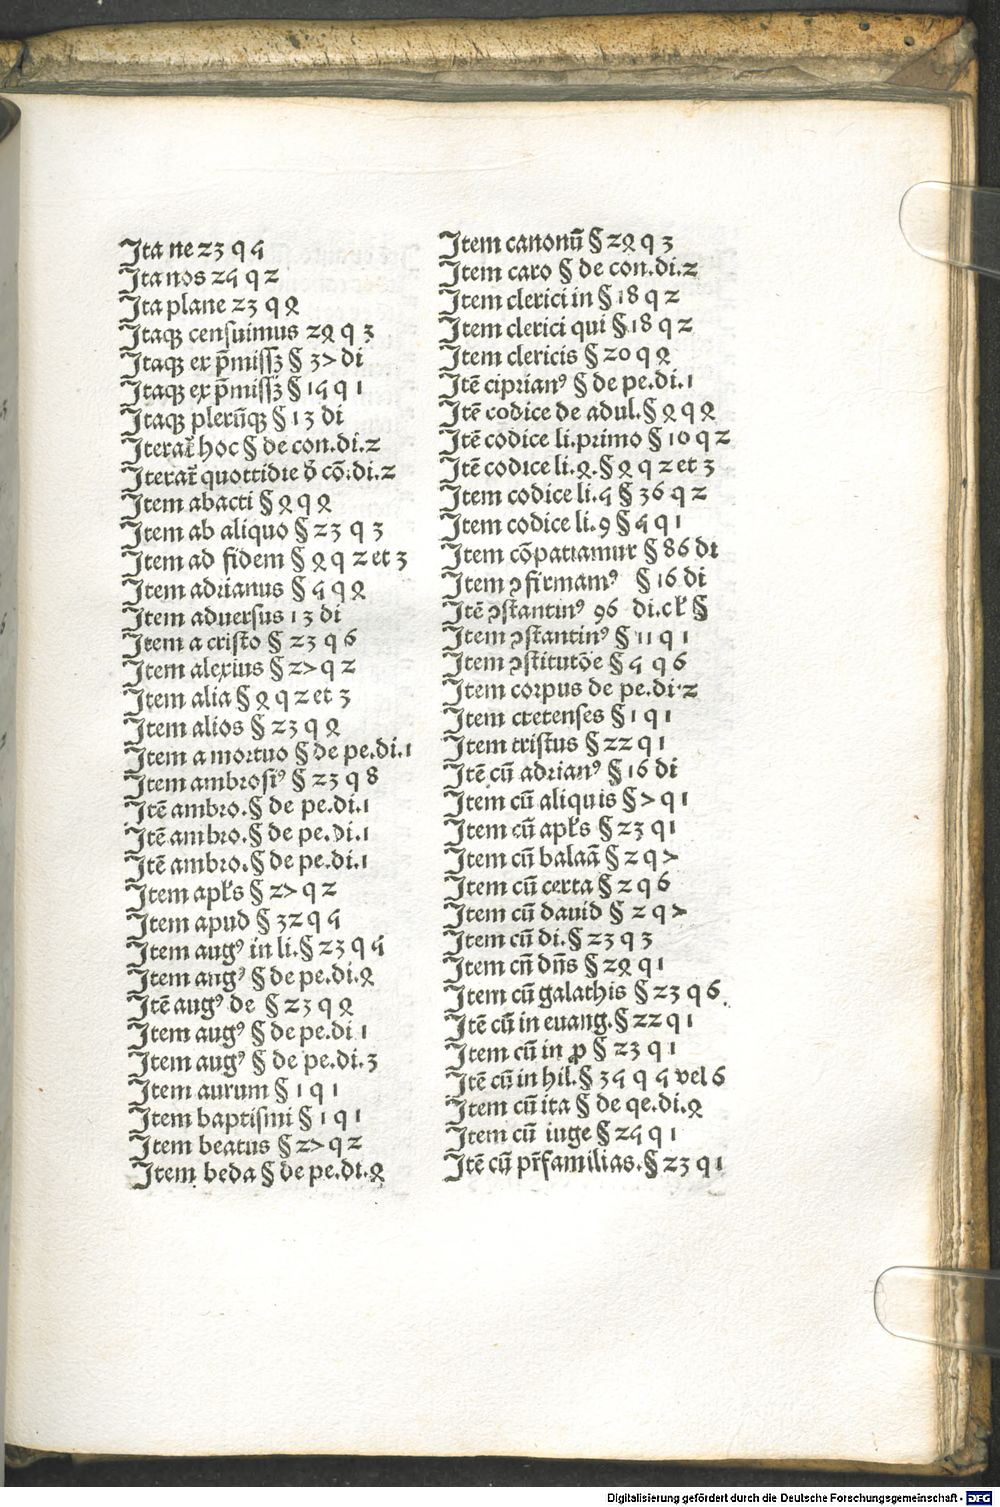 Ita ne 23 q 5
Ita nos 25 q 2
Ita plane 23 q 4
Itaqꝫ censuimus 24 q 3
Itaqꝫ ex p̄missꝫ § 37 di
Itaqꝫ ex p̄missꝫ § 15 q 1
Itaqꝫ plerūqꝫ § 13 di
Iterat̄ hoc § de con.di.2
Iterat̄ quottidie d̄ cō.di.2
Item abacti § 4 q 4
Item ab aliquo § 23 q 3
Item ad fidem § 4 q 2 et 3
Item adrianus § 5 q 4
Item aduersus 13 di
Item a cristo § 23 q 6
Item alexius § 27 q 2
Item alia § 4 q 2 et 3
Item alios § 23 q 4
Item a mortuo § de pe.di.1
Item ambrosiꝰ § 23 q 8
Itē ambro.§ de pe.di.1
Itē ambro.§ de pe.di.1
Itē ambro.§ de pe.di.1
Item apl̄s § 27 q 2
Item apud § 32 q 5
Item augꝰ in li.§ 23 q 5
Item augꝰ § de pe.di.4
Itē augꝰ de § 23 q 4
Item augꝰ § de pe.di 1
Item augꝰ § de pe.di.3
Item aurum § 1 q 1
Item baptismi § 1 q 1
Item beatus § 27 q 2
Item beda § de pe.di.4
Item canonū § 24 q 3
Item caro § de con.di.2
Item clerici in § 18 q 2
Item clerici qui § 18 q 2
Item clericis § 20 q 4
Itē ciprianꝰ § de pe.di.1
Itē codice de adul.§ 4 q 4
Itē codice li.primo § 10 q 2
Itē codice li.4.§ 4 q 2 et 3
Item codice li.5 § 36 q 2
Item codice li.9 § 5 q 1
Item cōpatiamur § 86 di
Item ꝯfirmamꝰ § 16 di
Itē ꝯstantinꝰ 96 di.ck̄ §
Item ꝯstantinꝰ § 11 q 1
Item ꝯstitutōe § 5 q 6
Item corpus de pe.di.2
Item cretenses § 1 q 1
Item tristus § 22 q 1
Itē cū adrianꝰ § 16 di
Item cū aliquis § 7 q 1
Item cū apl̄s § 23 q 1
Item cū balaā § 2 q 7
Item cū certa § 2 q 6
Item cū dauid § 2 q 7
Item cū di.§ 23 q 3
Item cū dn̄s § 24 q 1
Item cū galathis § 23 q 6.
Itē cū in euang.§ 22 q 1
Item cū in ꝓ § 23 q 1
Itē cū in hil.§ 35 q 5 vel 6
Item cū ita § de qe.di.4
Item cū iuge § 25 q 1
Itē cū pr̄familias.§ 23 q 1
Digitalisierung gefördert durch die Deutsche Forschungsgemeinschaft - DFG